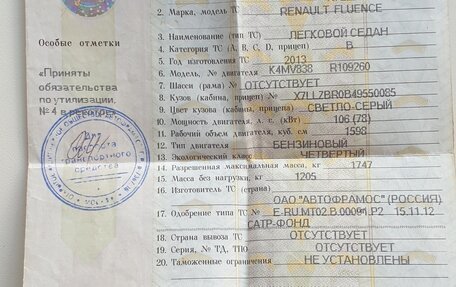 2. Марка, модель ТС RENAULT FLUENCE
Особые отметки
3. Наименование (тип ТС) ЛЕГКОВОЙ СЕДАН
4. Категория ТС (А, В, С, D, прицеп) B
«Приняты
обязательства
по утилизации.
№ 4 в
5. Год изготовления ТС 2013
6. Модель, № двигателя K4MV838 R109260
7. Шасси (рама) № ОТСУТСТВУЕТ
8. Кузов (кабина, прицеп) № X7LLZBR0B49550085
9. Цвет кузова (кабины, прицепа) СВЕТЛО-СЕРЫЙ
10. Мощность двигателя, л. с. (кВт) 106 (78)
11. Рабочий объем двигателя, куб. см 1598
12. Тип двигателя БЕНЗИНОВЫЙ
13. Экологический класс ЧЕТВЕРТЫЙ
14. Разрешенная максимальная масса, кг 1747
15. Масса без нагрузки, кг 1205
16. Изготовитель ТС (страна)
ОАО "АВТОФРАМОС" (РОССИЯ)
17. Одобрение типа ТС № E-RU.MT02.B.00091.P2 15.11.12
САТР-ФОНД
18. Страна вывоза ТС ОТСУТСТВУЕТ
19. Серия, № ТД, ТПО ОТСУТСТВУЕТ
20. Таможенные ограничения НЕ УСТАНОВЛЕНЫ
Для
паспорта
транспортного
средства